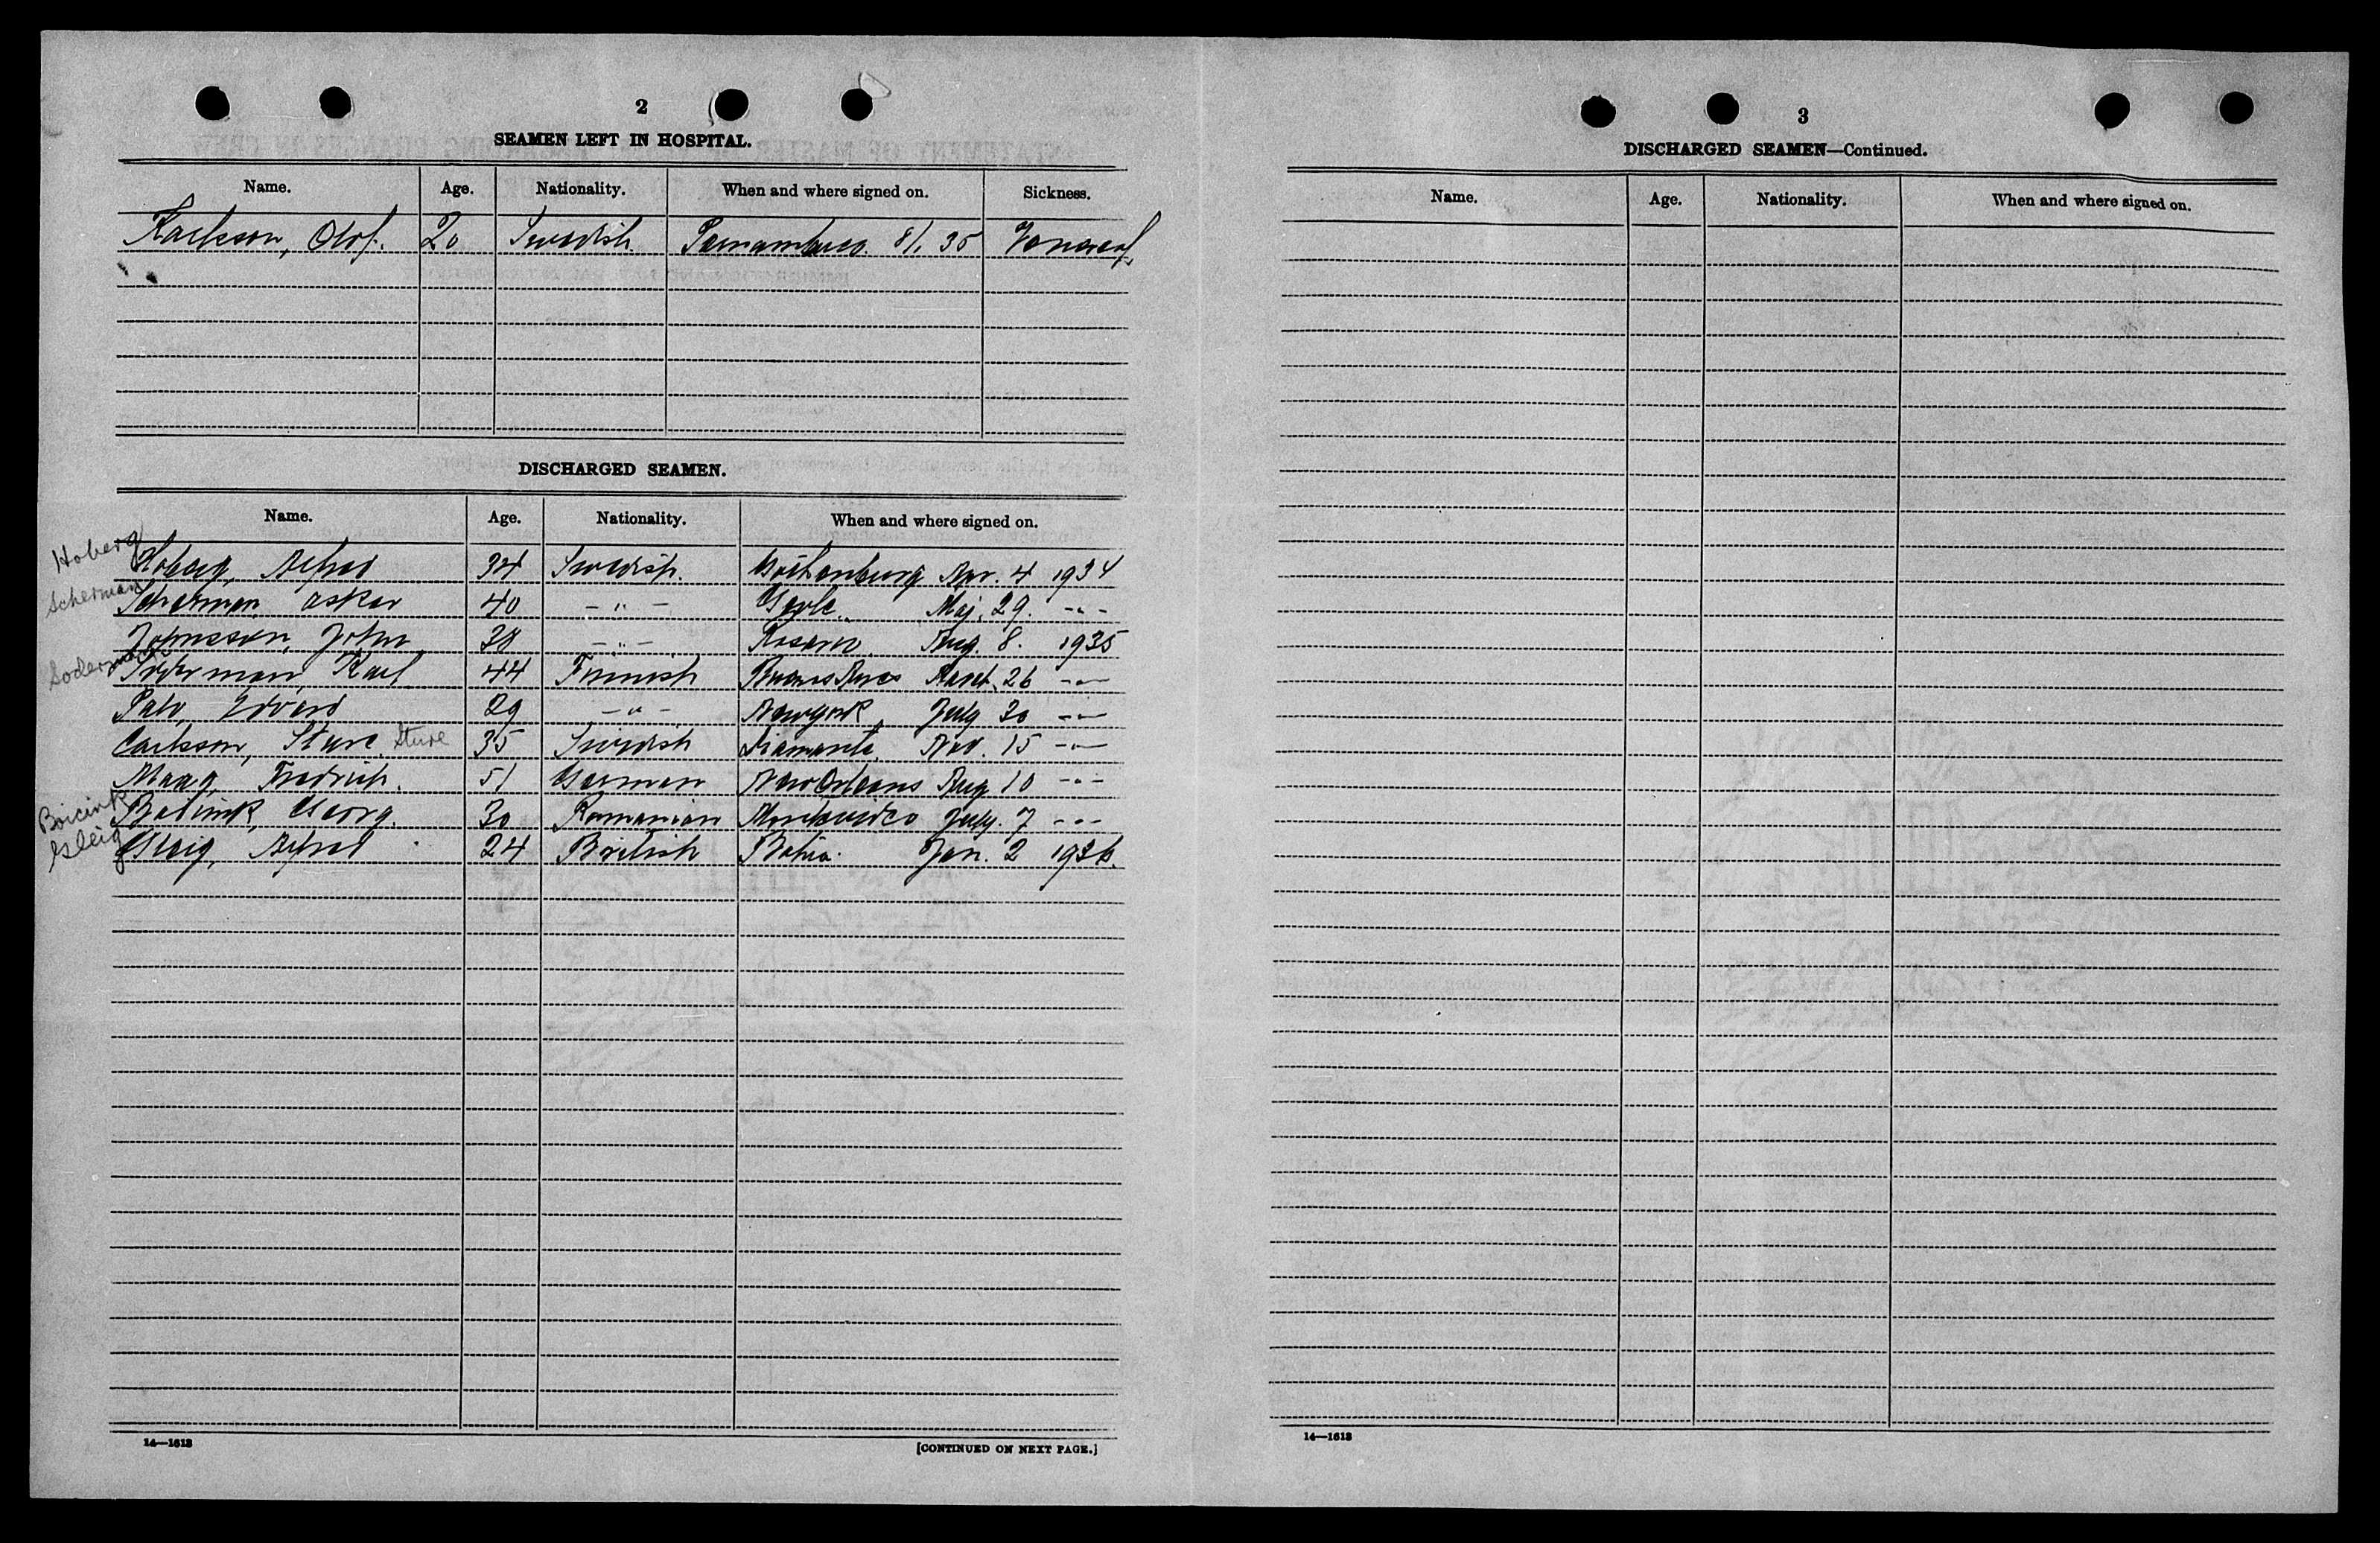 2
SEAMEN LEFT IN HOSPITAL.
Name. Age. Nationality. When and where signed on. Sickness.
Karlsson, Olof. 20 Swedish Pernambuco. 8/1. 35
DISCHARGED SEAMEN.
Name. Age. Nationality. When and where signed on.
Hoberg
Hoberg, Alfred 34 Swedish. Göthenburg Apr. 4 1934
Scherman
Scherman Oskar 40 -"- Gevle. Maj. 29. -"-
Johnsson, John 38 -"- Rosario. Aug. 8. 1935
Soderman
Söderman, Karl 44 Finnish Buenos Aires 26 -"-
Palo, Edvard 29 -"- New york, July 30 -"-
Carlsson, Sture Sture 35 Swedish Diamante. Nov. 15 -"-
Maag, Fredrich. 51 German New Orleans Aug 10 -"-
Boicink
Georg. 30 Romanian Montevideo July. 7 -"-
Gleig
Gleig, Alfred 24 British Bahia. Jan. 2 1936.
14—1613 [CONTINUED ON NEXT PAGE.]
3
DISCHARGED SEAMEN—Continued.
Name. Age. Nationality. When and where signed on.
14—1613